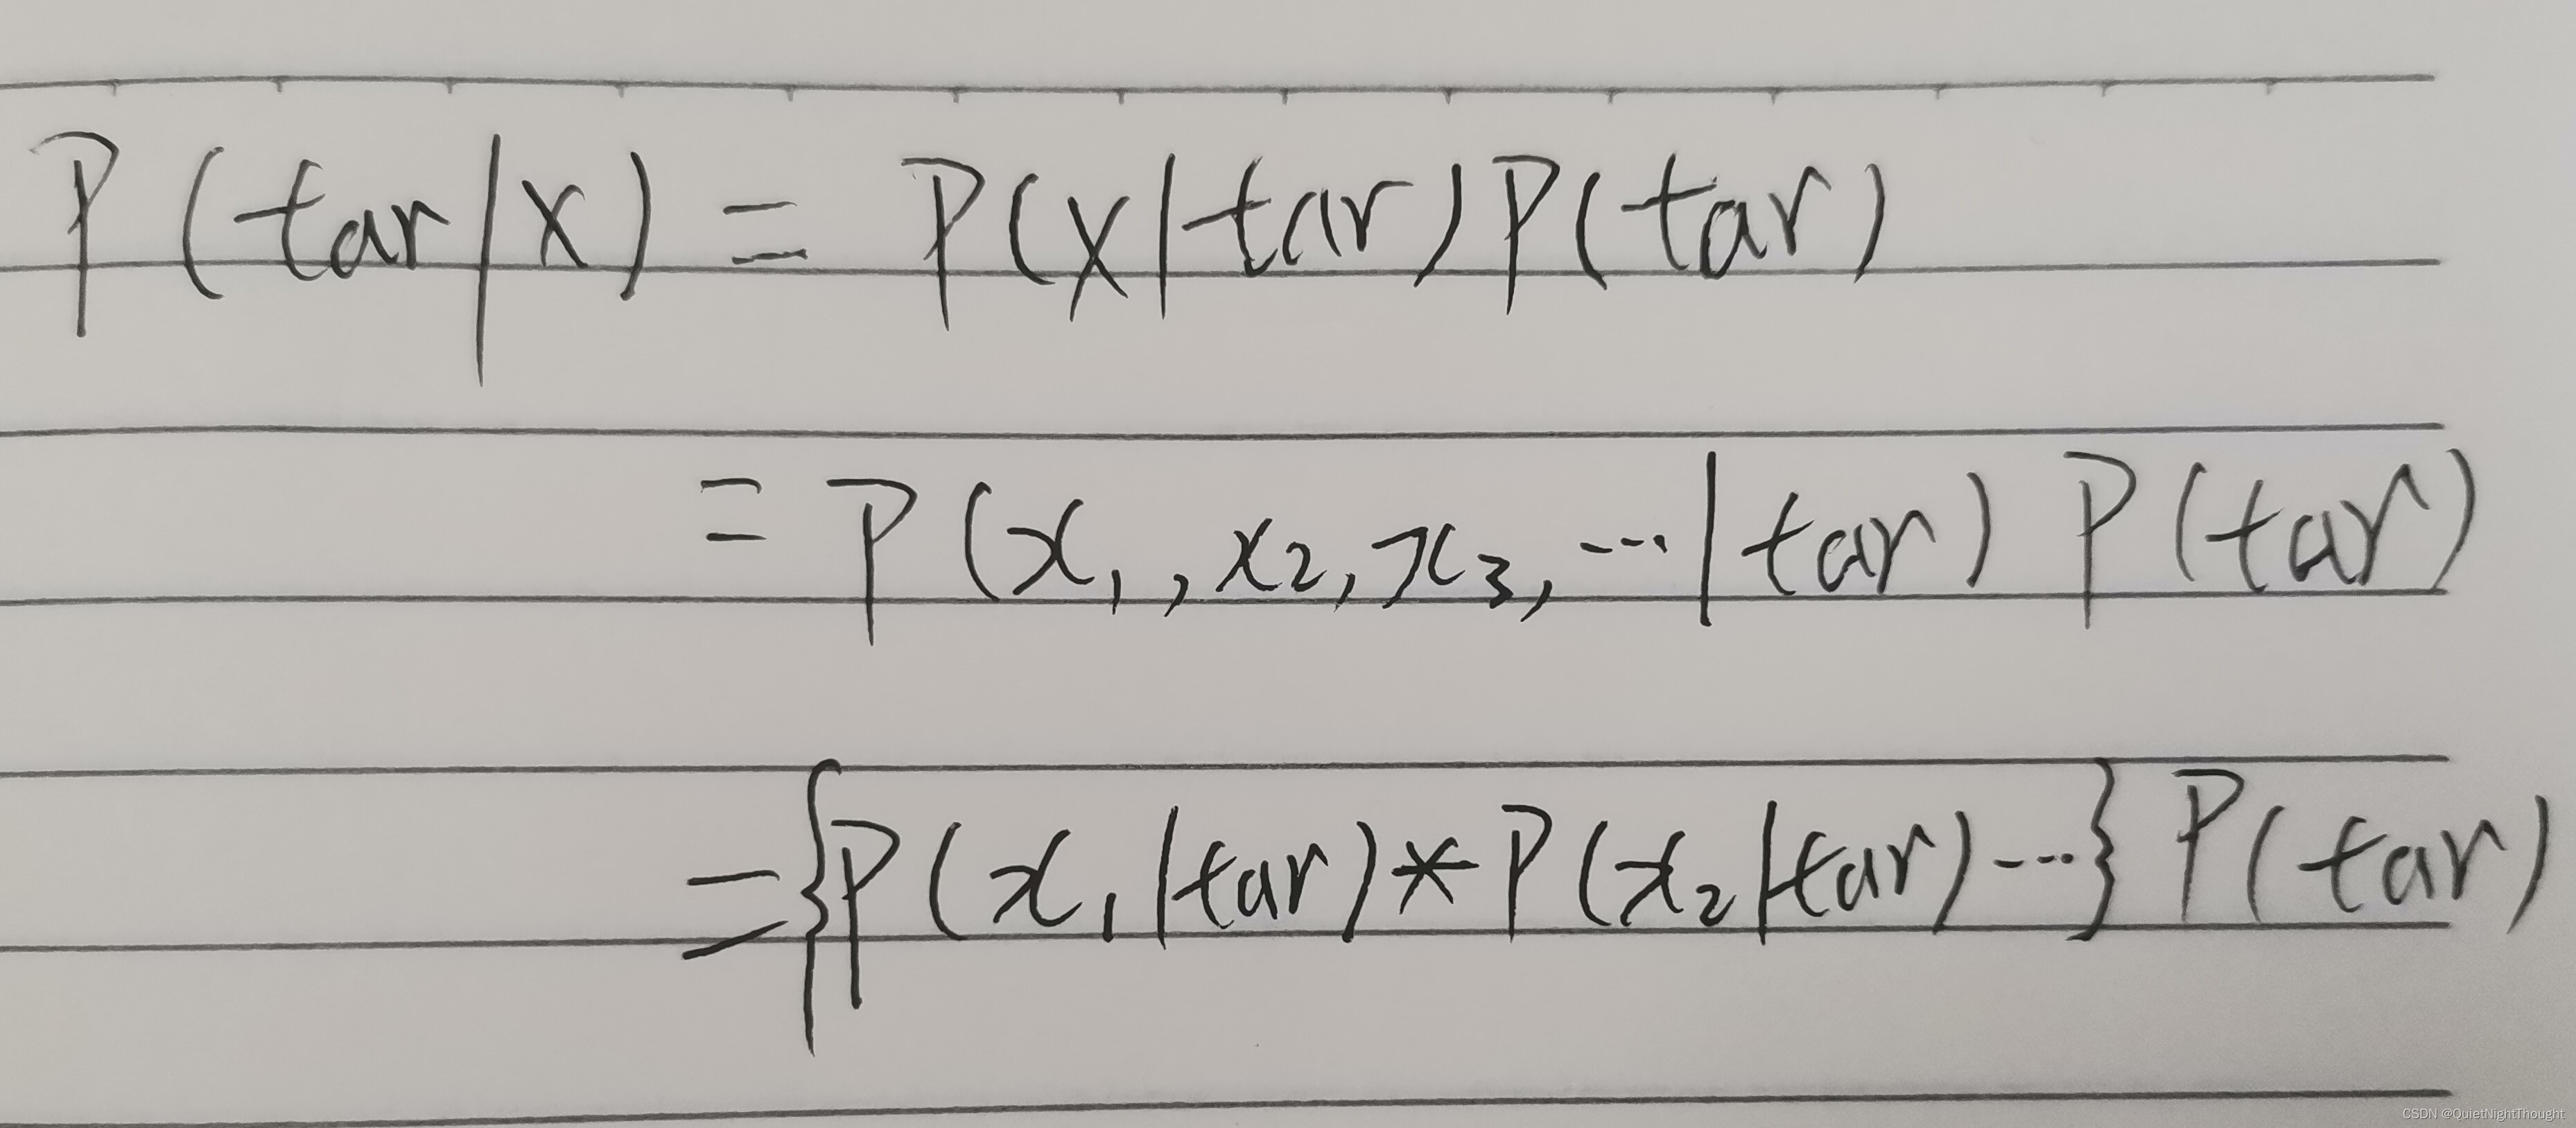 P(tar|x) = P(x|tar)P(tar)
= P(x₁,,x₂,x₃,...|tar) P(tar)
={P(x₁|tar)*P(x₂|tar)...} P(tar)
CSDN @QuietNightThought